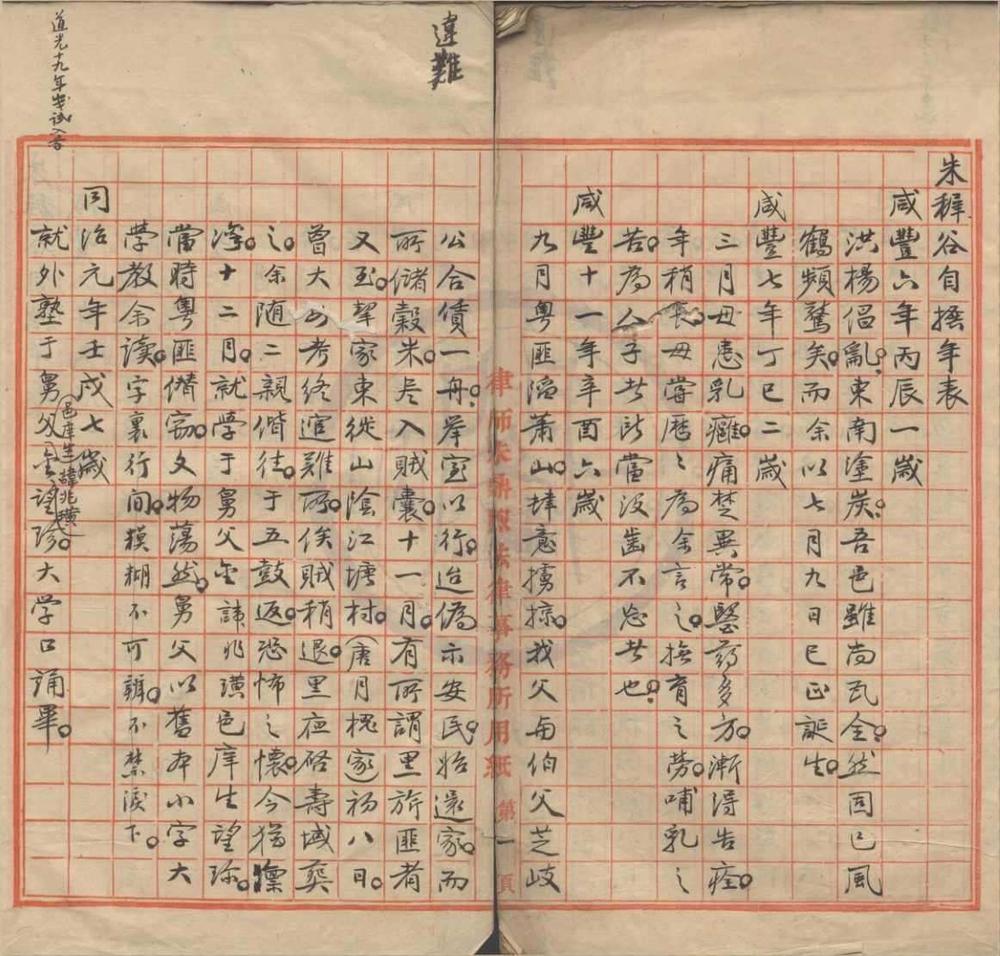 朱穉谷自撫年表
咸豐六年丙辰一歲
洪楊倡亂。東南塗炭。吾邑雖尚瓦全。然固已風
鶴頻驚矣。而余以七月九日巳正誕生。
咸豐七年丁巳二歲
三月毋患乳癰痛楚異常。醫葯多方。漸得告痊。
年稍長。毋嘗歷〻為余言之。撫育之勞。哺乳之
苦。為人子者所當沒齒不忘者也。
咸豐十一年辛酉六歲
九月粵匪滔蕭山。肆意擄掠。我父與伯父芝岐
律師朱鼎煦法律事務所用紙 第一頁
公合債一舟。举室以行。迨偽示安民。始還家。而
所儲穀米。尽入賊囊。十一月。有所謂里旂匪者
又至。挈家東從山陰江塘村。(唐月槐家)初八日。
曾大考終避難所。俟賊稍退。里夜啓壽域葬
之。余随二親偕往。于五鼓返。恐怖之懷。今猶凜
凜。十二月。就学于舅父金諱兆璜邑庠生望珎。
當時粵匪僭竊。文物蕩然。舅父以舊本小字大
学教余讀。字裏行間。糢糊不可辨。不禁淚下。
同治元年壬戌七歲
就外塾于舅父(邑庠生諱兆璜)金望珎。大学口誦畢。
違難
道光十九年歲試入